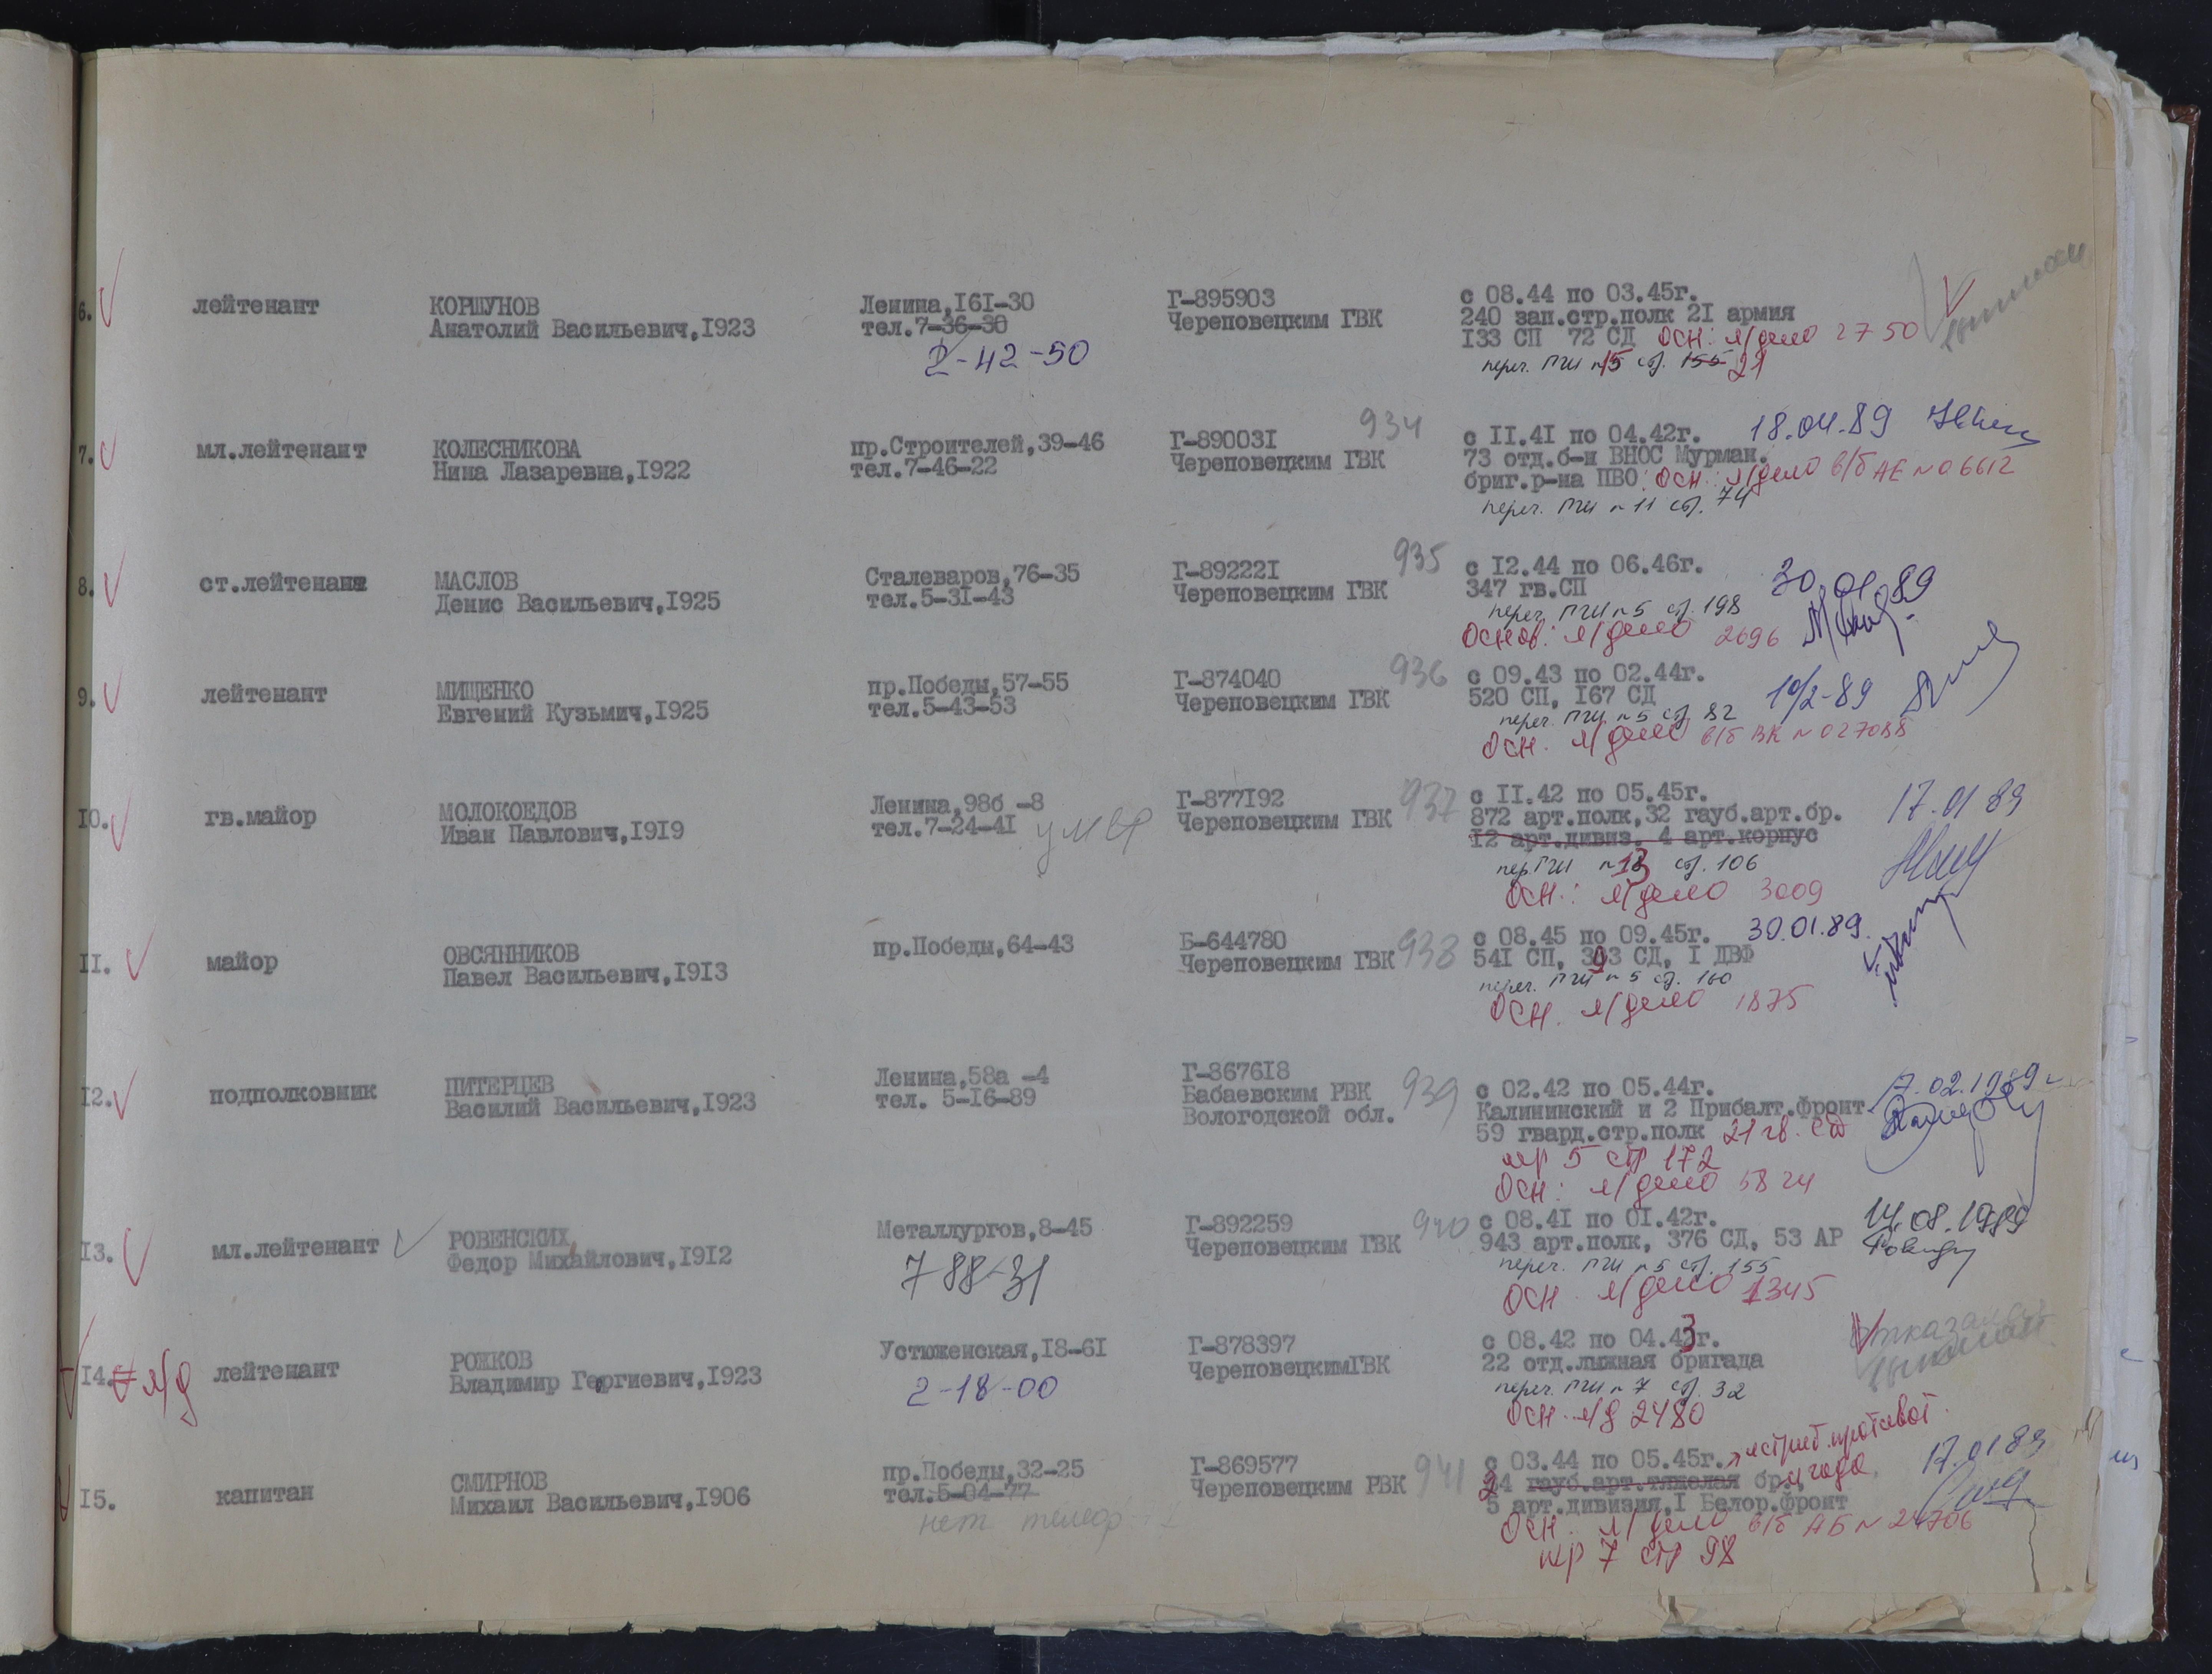 6. лейтенант КОРШУНОВ Ленина,161-30 Г-895903 с 08.44 по 03.45г.
Анатолий Васильевич,1923 тел.7-36-30 Череповецким ГВК 240 зап.стр.полк 21 армия
2-42-50 133 СП 72 СД осн: л/дело 2750
переч. ГШ №5 ст. 155 21
7. мл.лейтенант КОЛЕСНИКОВА пр.Строителей,39-46 Г-890031 934 с 11.41 по 04.42г. 18.04.89
Нина Лазаревна,1922 тел.7-46-22 Череповецким ГВК 73 отд.б-н ВНОС Мурман.
бриг.р-на ПВО. осн: л/дело в/б АЕ № 06612
переч. ГШ № 11 ст. 74
8. ст.лейтенант МАСЛОВ Сталеваров,76-35 Г-892221 935 с 12.44 по 06.46г. 30.01.89
Денис Васильевич,1925 тел.5-31-43 Череповецким ГВК 347 гв.СП
переч. ГШ № 5 ст. 198
Основ: л/дело 2696
9. лейтенант МИЩЕНКО пр.Победы,57-55 Г-874040 936 с 09.43 по 02.44г.
Евгений Кузьмич,1925 тел.5-43-53 Череповецким ГВК 520 СП, 167 СД 10/2-89
переч. ГШ № 5 ст. 82
Осн. л/дело в/б ВК № 027088
10. гв.майор МОЛОКОЕДОВ Ленина,98б -8 Г-877192 937 с 11.42 по 05.45г. 17.01 89
Иван Павлович,1919 тел.7-24-41 умер Череповецким ГВК 872 арт.полк,32 гауб.арт.бр.
12 арт.дивиз. 4 арт.корпус
пер.ГШ №13 ст. 106
Осн.: л/дело 3009
11. майор ОВСЯННИКОВ пр.Победы,64-43 Б-644780 938 с 08.45 по 09.45г. 30.01.89.
Павел Васильевич,1913 Череповецким ГВК 541 СП, 393 СД, 1 ДВФ
переч. ГШ № 5 ст. 160
Осн. л/дело 1875
12. подполковник ПИТЕРЦЕВ Ленина,58а -4 Г-867618 939 с 02.42 по 05.44г. 7.02.1989 г
Василий Васильевич,1923 тел. 5-16-89 Бабаевским РВК Калининский и 2 Прибалт.фронт
Вологодской обл. 59 гвард.стр.полк 21 гв. СД
пер 5 стр 172
Осн: л/дело 5824
13. мл.лейтенант РОВЕНСКИХ Металлургов,8-45 Г-892259 940 с 08.41 по 01.42г. 14.08.1989
Федор Михайлович,1912 7 88-31 Череповецким ГВК 943 арт.полк, 376 СД, 53 АР
переч. ГШ № 5 ст. 155
Осн. л/дело 1345
14. л/д лейтенант РОЖКОВ Устюженская,18-61 Г-878397 с 08.42 по 04.43г.
Владимир Георгиевич,1923 2-18-00 ЧереповецкимГВК 22 отд.лыжная бригада
переч. ГШ № 7 ст. 32
осн. л/д 2480
15. капитан СМИРНОВ пр.Победы,32-25 Г-869577 941 с 03.44 по 05.45г. истреб.противот. 17.01.89
Михаил Васильевич,1906 тел.5-04-77 Череповецким РВК 24 гауб.арт.тяжелая бригада
нет телеф 5 арт.дивизия,1 Белор.фронт
Осн. л/дело в/б АБ № 24706
пер 7 стр 98